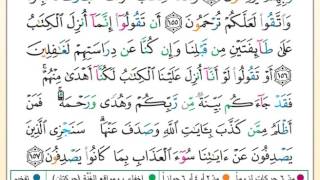 وَٱتَّقُوا۟ لَعَلَّكُمْ تُرْحَمُونَ ١٥٥ أَن تَقُولُوٓا۟ إِنَّمَآ أُنزِلَ ٱلْكِتَٰبُ
عَلَىٰ طَآئِفَتَيْنِ مِن قَبْلِنَا وَإِن كُنَّا عَن دِرَاسَتِهِمْ لَغَٰفِلِينَ
١٥٦ أَوْ تَقُولُوا۟ لَوْ أَنَّآ أُنزِلَ عَلَيْنَا ٱلْكِتَٰبُ لَكُنَّآ أَهْدَىٰ مِنْهُمْ ۚ
فَقَدْ جَآءَكُم بَيِّنَةٌ مِّن رَّبِّكُمْ وَهُدًى وَرَحْمَةٌ ۚ فَمَنْ
أَظْلَمُ مِمَّن كَذَّبَ بِـَٔايَٰتِ ٱللَّهِ وَصَدَفَ عَنْهَا ۗ سَنَجْزِى ٱلَّذِينَ
يَصْدِفُونَ عَنْ ءَايَٰتِنَا سُوٓءَ ٱلْعَذَابِ بِمَا كَانُوا۟ يَصْدِفُونَ ١٥٧